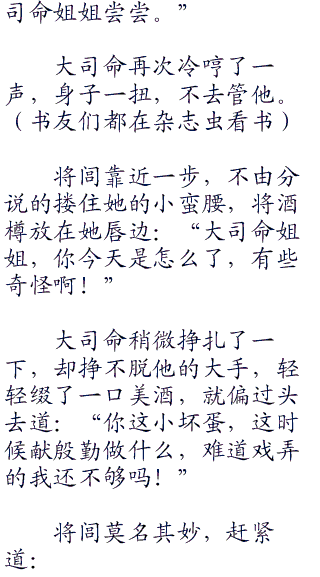 司命姐姐尝尝。”
大司命再次冷哼了一
声，身子一扭，不去管他。
（书友们都在杂志虫看书）
将闾靠近一步，不由分
说的搂住她的小蛮腰，将酒
樽放在她唇边：“大司命姐
姐，你今天是怎么了，有些
奇怪啊！”
大司命稍微挣扎了一
下，却挣不脱他的大手，轻
轻缀了一口美酒，就偏过头
去道：“你这小坏蛋，这时
候献殷勤做什么，难道戏弄
的我还不够吗！”
将闾莫名其妙，赶紧
道：